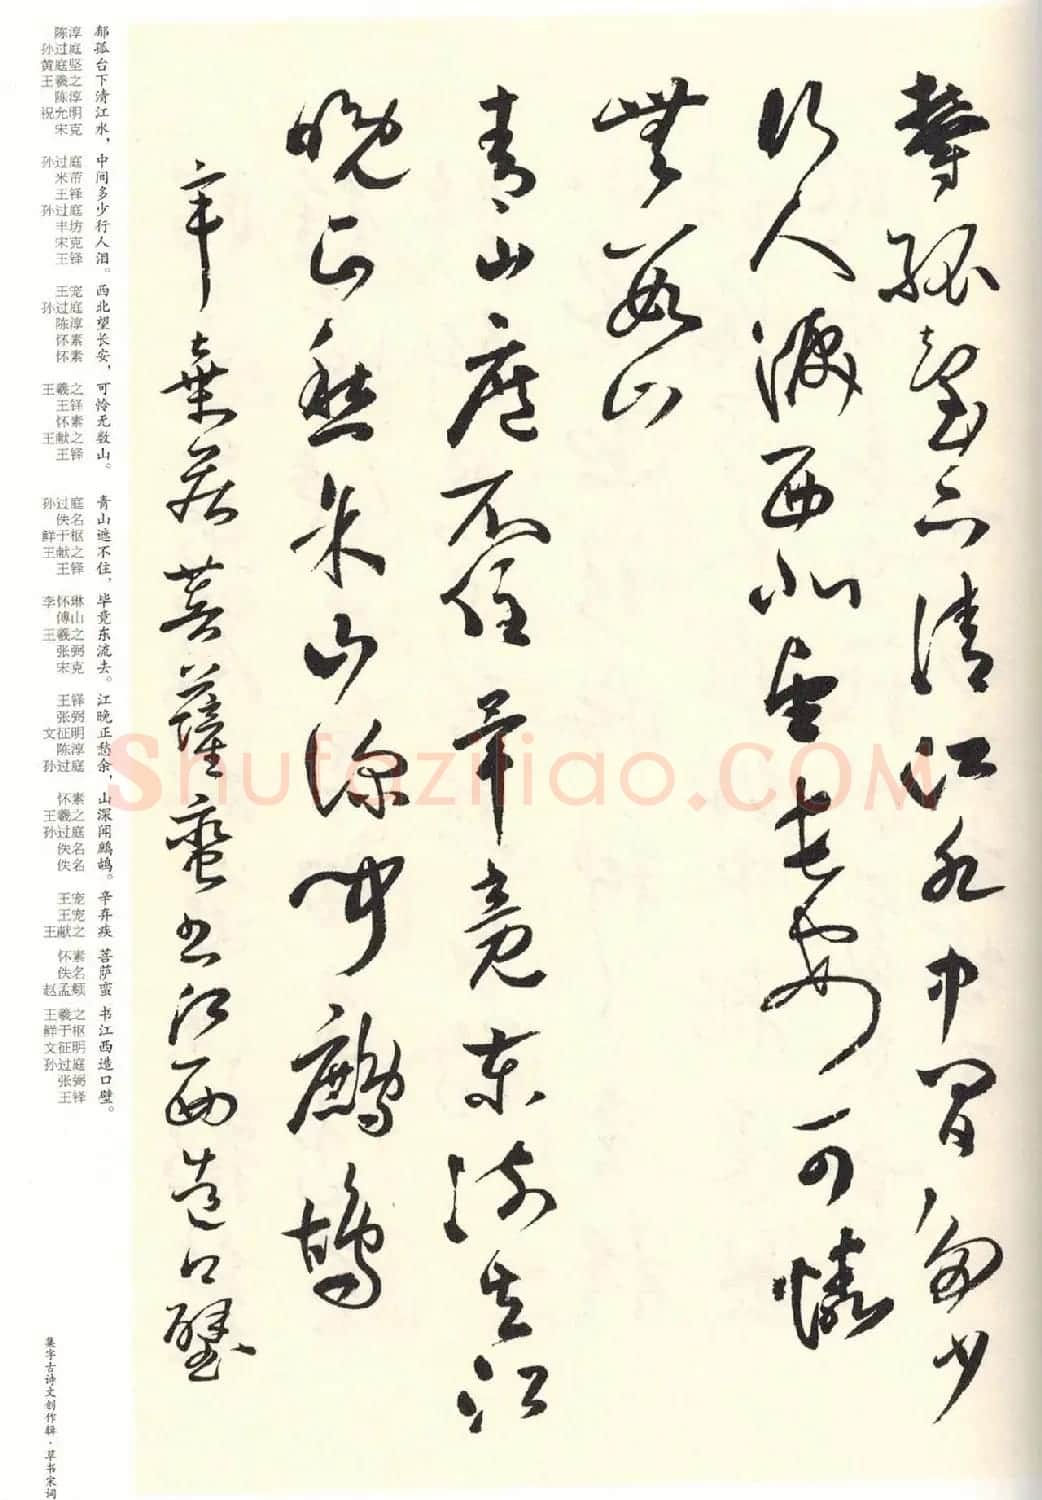 鬱孤臺下清江水中間多少
行人淚西北望長安可憐
無數山
青山遮不住畢竟東流去江
晚正愁余山深聞鷓鴣
辛棄疾菩薩蠻書江西造口壁
陈淳 郁
孙过庭 孤
黄庭坚 台
王羲之 下
陈淳 清
祝允明 江
宋克 水，
孙过庭 中
米芾 间
王铎 多
孙过庭 少
丰坊 行
宋克 人
王铎 泪。
王宠 西
孙过庭 北
陈淳 望
怀素 长
怀素 安，
王羲之 可
王铎 怜
怀素 无
王献之 数
王铎 山。
孙过庭 青
佚名 山
鲜于枢 遮
王献之 不
王铎 住，
李怀琳 毕
傅山 竟
王羲之 东
张弼 流
宋克 去。
王铎 江
张弼 晚
文征明 正
陈淳 愁
孙过庭 余，
怀素 山
王羲之 深
孙过庭 闻
佚名 鹧
佚名 鸪。
王宠 辛
王宠 弃
王献之 疾
怀素 菩
佚名 萨
赵孟頫 蛮
王羲之 书
鲜于枢 江
文征明 西
孙过庭 造
张弼 口
王铎 壁。
集字古诗文创作辑·草书宋词
Shufaziliao.COM